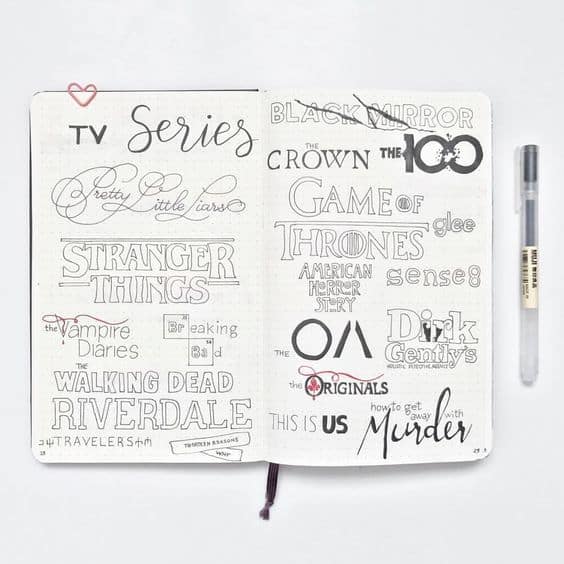 TV Series
Pretty Little Liars
STRANGER
THINGS
the Vampire
Diaries
Breaking
Bad
THE
WALKING DEAD
RIVERDALE
TRAVELERS
THIRTEEN REASONS
WHY
BLACK MIRROR
THE
CROWN
THE 100
GAME OF
THRONES
glee
AMERICAN
HORROR
STORY
sense8
THE OA
Dirk
Gently's
HOLISTIC DETECTIVE AGENCY
the ORIGINALS
THIS IS US
how to get
away with
Murder
MUJI